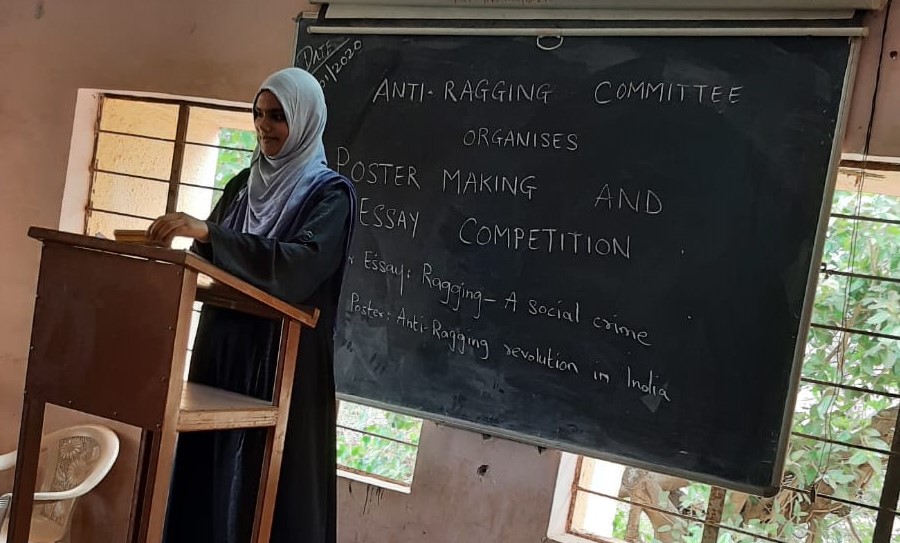 DATE
01/2020
ANTI-RAGGING COMMITTEE
ORGANISES
POSTER MAKING AND
ESSAY COMPETITION
Essay: Ragging- A social crime
Poster: Anti-Ragging revolution in India